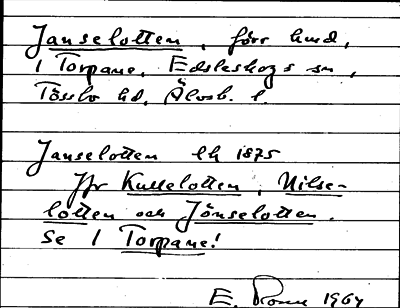 Janselotten, förr hmd,
1 Torpane, Edsleskogs sn,
Tössbo hd, Älvsb. l.
Janselotten lk 1875
Jfr Kullelotten, Nilse-
lotten och Jönselotten.
Se 1 Torpane!
E. 1964